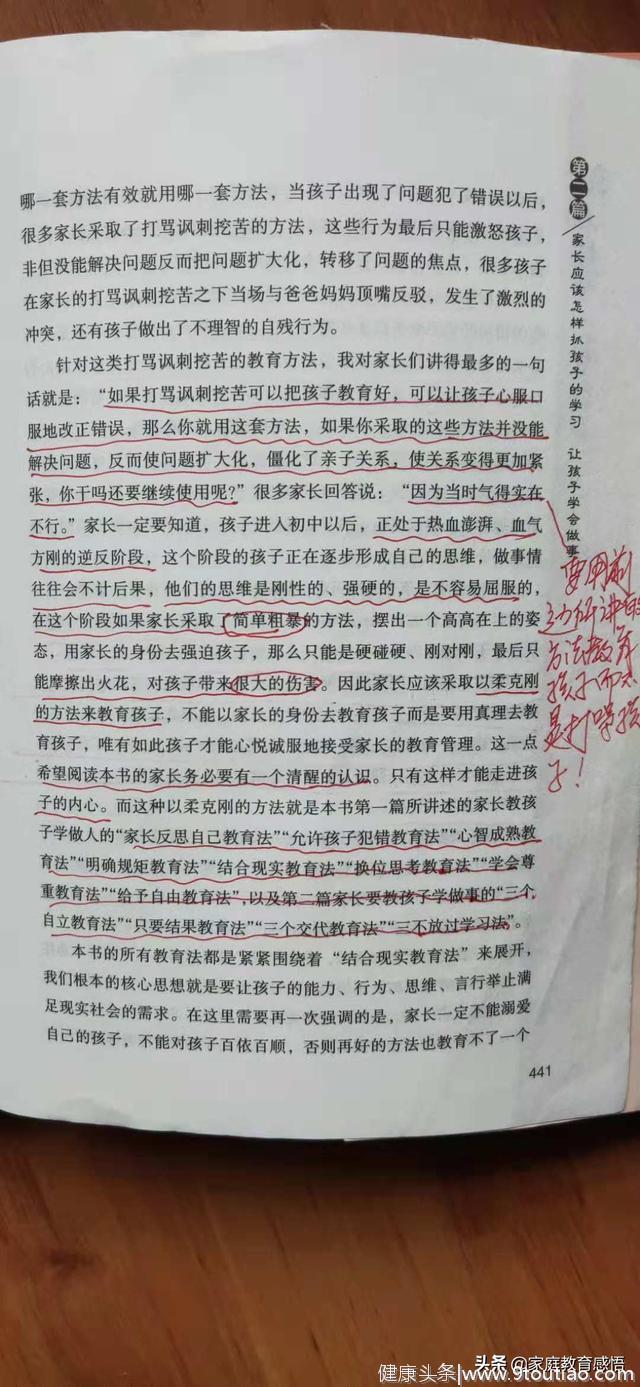 哪一套方法有效就用哪一套方法，当孩子出现了问题犯了错误以后，
很多家长采取了打骂讽刺挖苦的方法，这些行为最后只能激怒孩子，
非但没能解决问题反而把问题扩大化，转移了问题的焦点，很多孩子
在家长的打骂讽刺挖苦之下当场与爸爸妈妈顶嘴反驳，发生了激烈的
冲突，还有孩子做出了不理智的自残行为。
针对这类打骂讽刺挖苦的教育方法，我对家长们讲得最多的一句
话就是：“如果打骂讽刺挖苦可以把孩子教育好，可以让孩子心服口
服地改正错误，那么你就用这套方法，如果你采取的这些方法并没能
解决问题，反而使问题扩大化，僵化了亲子关系，使关系变得更加紧
张，你干吗还要继续使用呢?”很多家长回答说：“因为当时气得实在
不行。”家长一定要知道，孩子进入初中以后，正处于热血澎湃、血气
方刚的逆反阶段，这个阶段的孩子正在逐步形成自己的思维，做事情
往往会不计后果，他们的思维是刚性的、强硬的，是不容易屈服的，
在这个阶段如果家长采取了简单粗暴的方法，摆出一个高高在上的姿
态，用家长的身份去强迫孩子，那么只能是硬碰硬、刚对刚，最后只
能摩擦出火花，对孩子带来很大的伤害。因此家长应该采取以柔克刚
的方法来教育孩子，不能以家长的身份去教育孩子而是要用真理去教
育孩子，唯有如此孩子才能心悦诚服地接受家长的教育管理。这一点
希望阅读本书的家长务必要有一个清醒的认识。只有这样才能走进孩
子的内心。而这种以柔克刚的方法就是本书第一篇所讲述的家长教孩
子学做人的“家长反思自己教育法”“允许孩子犯错教育法”“心智成熟教
育法”“明确规矩教育法”“结合现实教育法”“换位思考教育法”“学会尊
重教育法”“给予自由教育法”，以及第二篇家长要教孩子学做事的“三个
自立教育法”“只要结果教育法”“三个交代教育法”“三不放过学习法”。
本书的所有教育法都是紧紧围绕着“结合现实教育法”来展开，
我们根本的核心思想就是要让孩子的能力、行为、思维、言行举止满
足现实社会的需求。在这里需要再一次强调的是，家长一定不能溺爱
自己的孩子，不能对孩子百依百顺，否则再好的方法也教育不了一个
441
第二篇
家长应该怎样抓孩子的学习 让孩子学会做事
要用前
方法教育
孩子而不
是打骂孩
子！
头条 @家庭教育感悟
健康头条|www.9toutiao.com